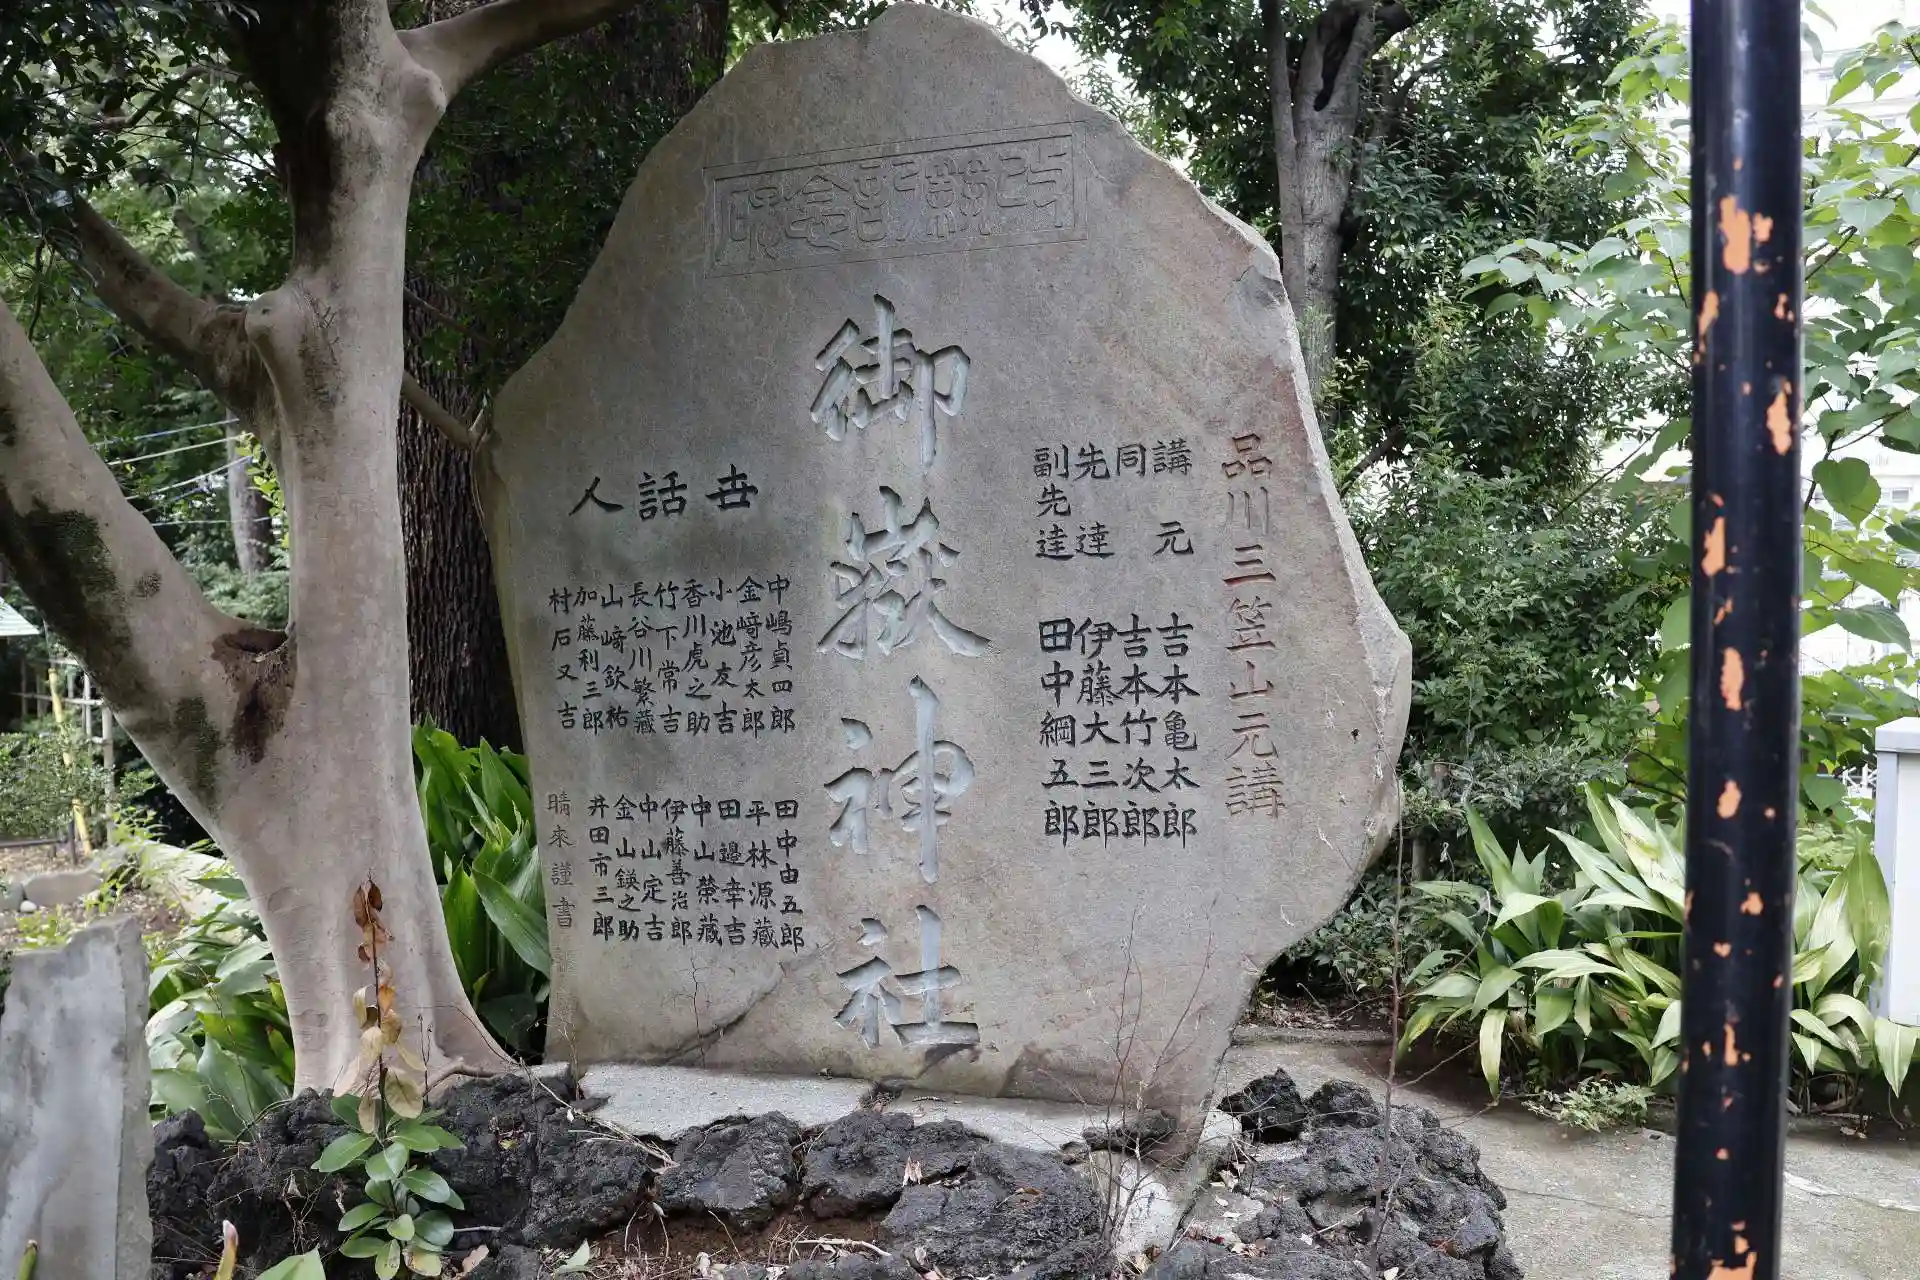 改築記念碑
品川三笠山元講
講元 吉本亀太郎
同 吉本竹次郎
先達 伊藤大三郎
副先達 田中綱五郎
御嶽神社
世話人
中嶋貞四郎
金﨑彦太郎
小池友吉
香川虎之助
竹下常吉
長谷川繁蔵
山﨑欽祐
加藤利三郎
村石又吉
田中由五郎
平林源蔵
田邉幸吉
中山榮蔵
伊藤善治郎
中山定吉
金山鍈之助
井田市三郎
晴來謹書